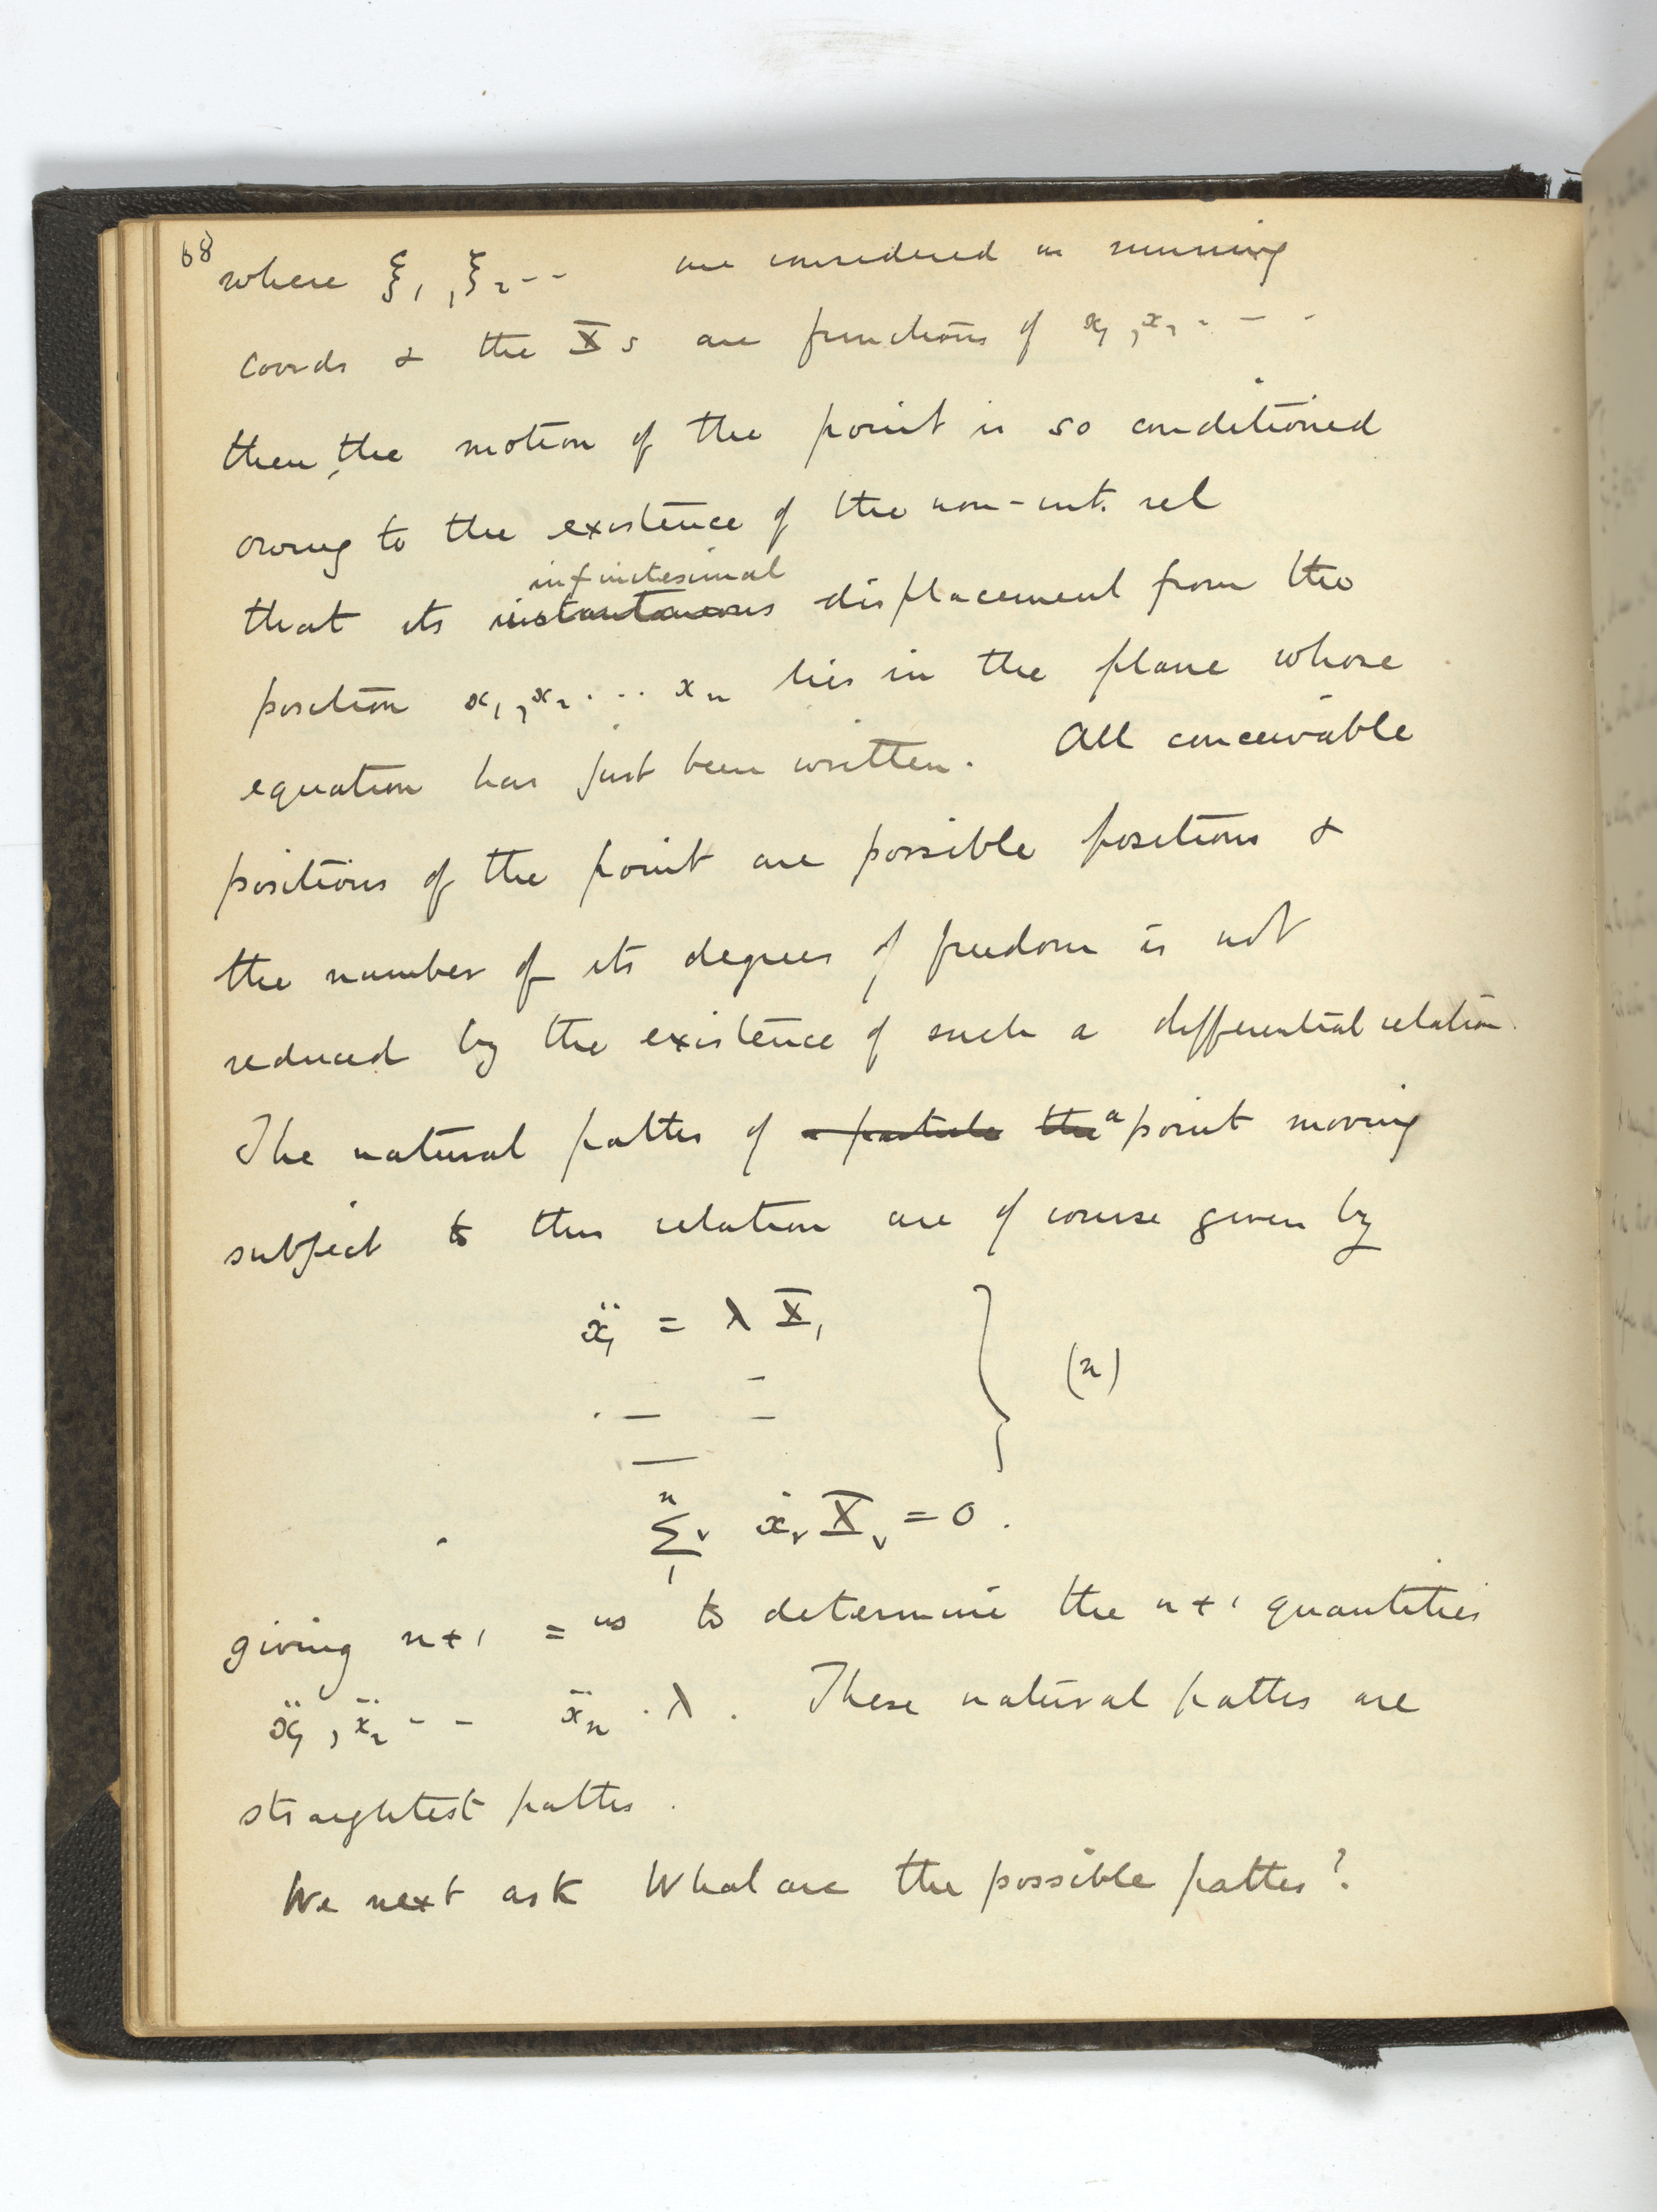 68
where ξ₁, ξ₂ - - are considered as running
coords & the Xs are functions of x₁, x₂ - - -
then, the motion of the point is so conditioned
owing to the existence of the non-int. rel
infinitesimal
that its instantaneous displacement from the
position x₁, x₂ . . . xₙ lies in the plane whose
equation has just been written. All conceivable
positions of the point are possible positions &
the number of its degrees of freedom is not
reduced by the existence of such a differential relation.
The natural paths of a particle the a point moving
subject to this relation are of course given by
ẍ₁ = λ X₁
(n)
. — —
—
∑₁ⁿᵥ ẋᵥ Xᵥ = 0.
giving n+1 =ⁿˢ to determine the n+1 quantities
ẍ₁, ẍ₂ - - ẍₙ . λ. These natural paths are
straightest paths.
We next ask What are the possible paths?